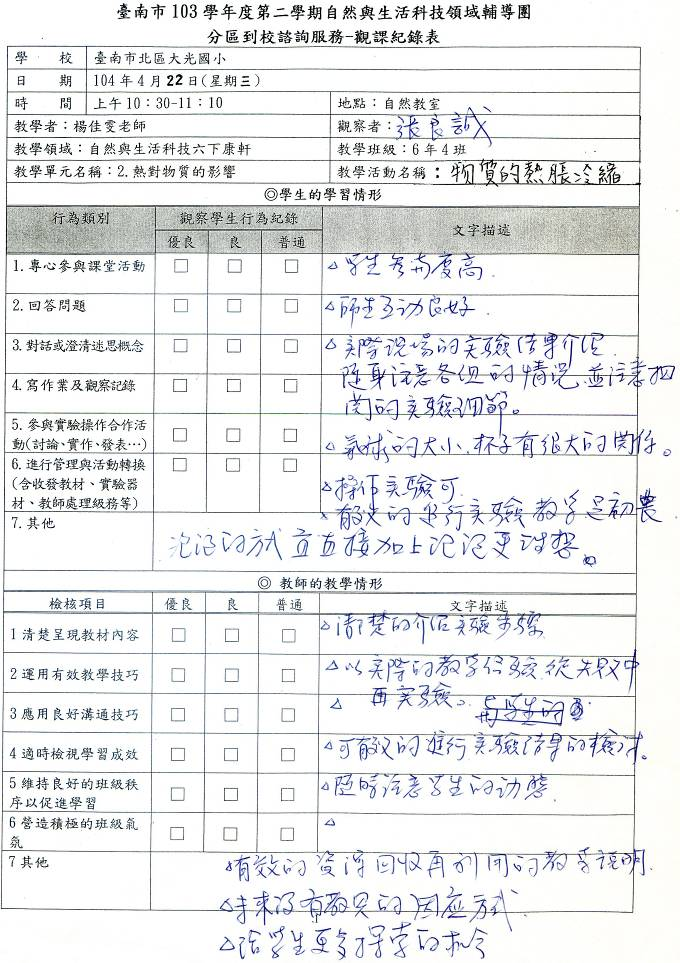 臺南市 103 學年度第二學期自然與生活科技領域輔導團
分區到校諮詢服務-觀課紀錄表
學 校 臺南市北區大光國小
日 期 104 年 4 月 22 日(星期三)
時 間 上午 10：30-11：10 地點：自然教室
教學者：楊佳雯老師 觀察者：張良誠
教學領域：自然與生活科技六下康軒 教學班級：6 年 4 班
教學單元名稱：2.熱對物質的影響 教學活動名稱：物質的熱脹冷縮
◎學生的學習情形
行為類別 觀察學生行為紀錄 文字描述
優良 良 普通
1.專心參與課堂活動 □ □ □ △學生參與度高
2.回答問題 □ □ □ △師生互动良好.
3.對話或澄清迷思概念 □ □ □ △實際現場的实驗結果介绍
隨身注意各组的情況,並注意相
4.寫作業及觀察記錄 □ □ □
関的实驗細節。
5.參與實驗操作合作活
動(討論、實作、發表…) □ □ □
△氣球的大小,杯子有很大的関係。
6.進行管理與活動轉換 □ □ □
(含收發教材、實驗器
材、教師處理級務等)
△操作实驗可
7.其他
有效的進行实驗教学
方式 直接加上 更理想。
◎ 教師的教學情形
檢核項目 優良 良 普通 文字描述
1 清楚呈現教材內容 □ □ □ △清楚的介绍实驗步驟
2 運用有效教學技巧 □ □ □ △以实際的教学经驗,從失敗中
再实驗。
3 應用良好溝通技巧 □ □ □ △
4 適時檢視學習成效 □ □ □ △可有效的進行实驗結果的檢讨。
5 維持良好的班級秩
序以促進學習 □ □ □ △隨時注意学生的动態
6 營造積極的班級氣
氛 □ □ □ △
7 其他 △有效的資源回收再利用的教学說明.
△未來没有教具的因應方式.
△给學生更多探索的机会